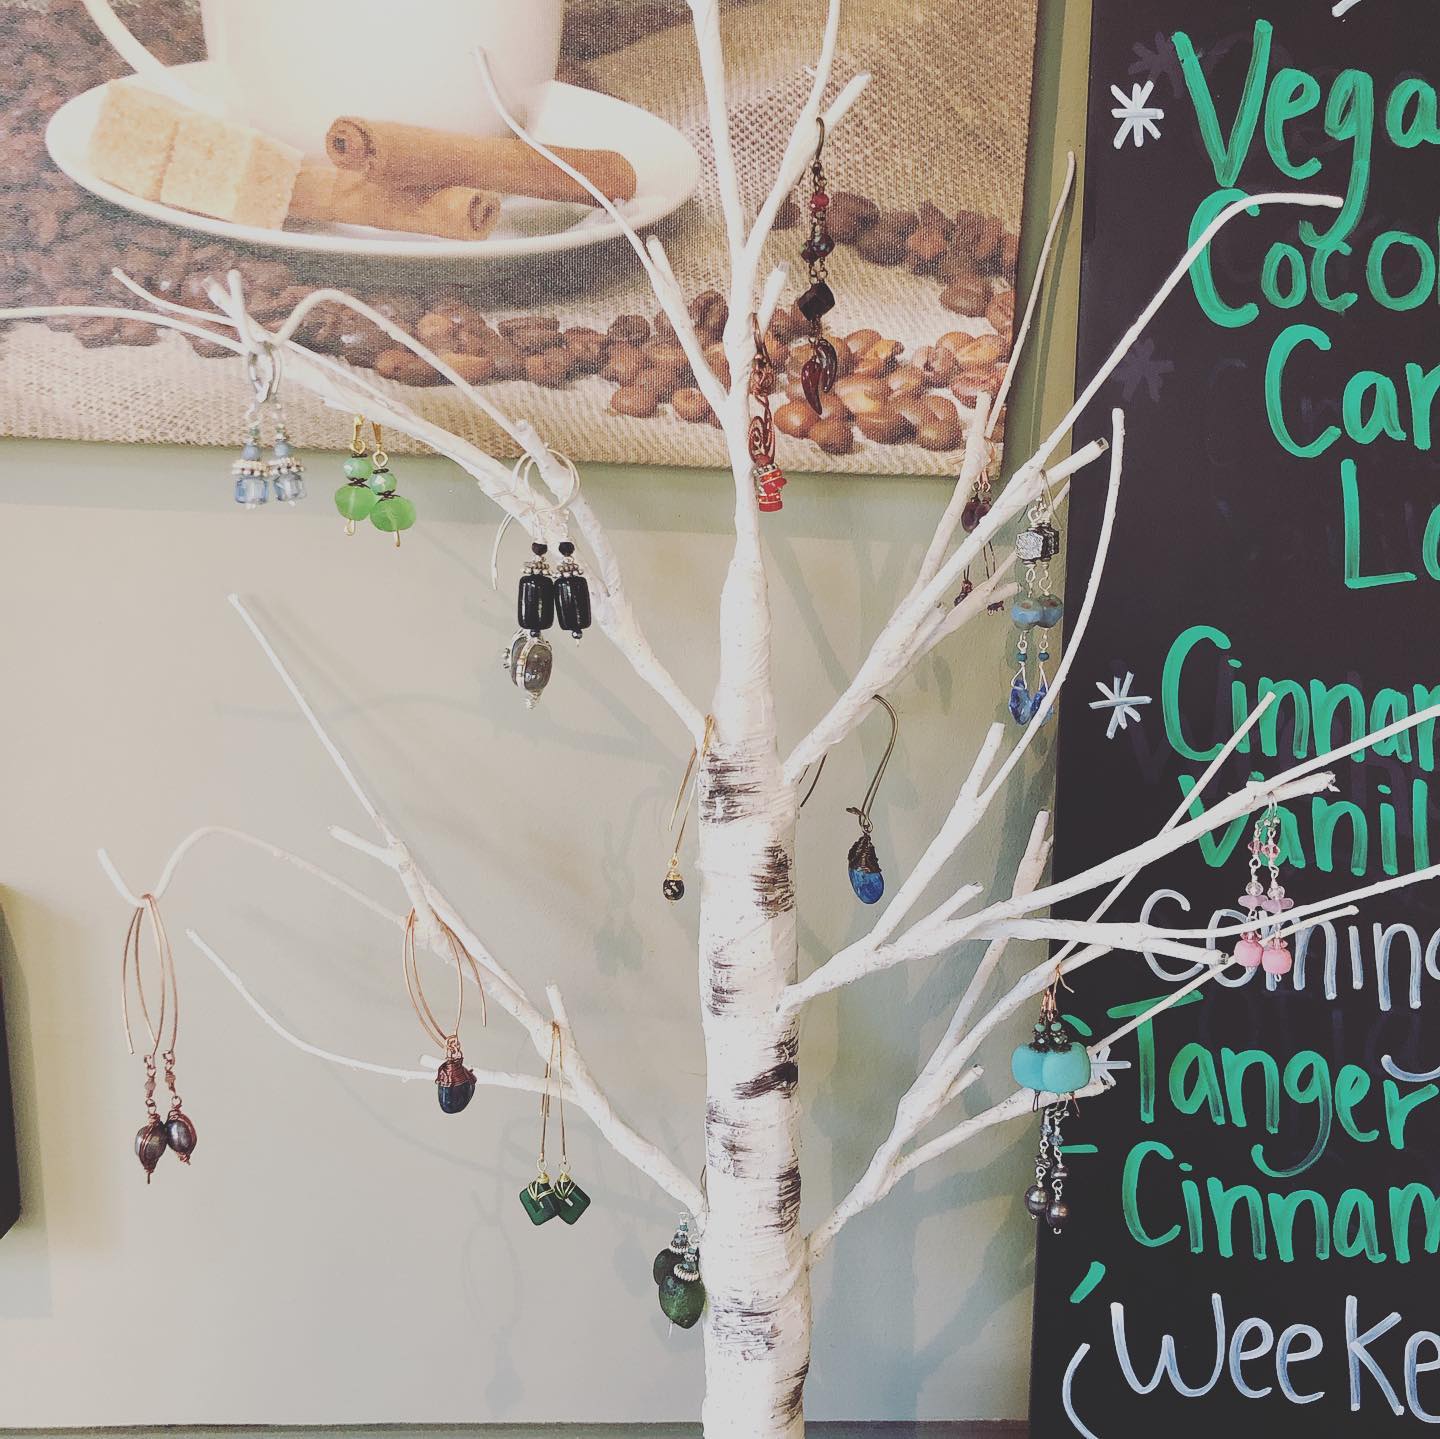 * Vega
Coco
Car
Lo
* Cinnam
Vanil
Coming
* Tanger
- Cinnam
(Weeke